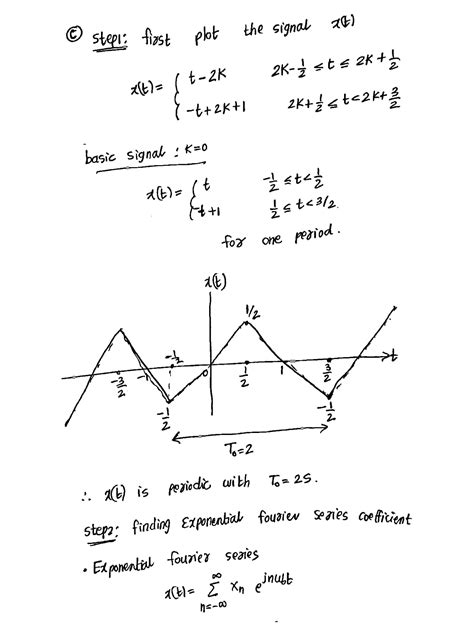 ⓒ step1: first plot the signal x(t)
x(t) = { t-2K    2K-1/2 ≤ t ≤ 2K+1/2
-t+2K+1    2K+1/2 ≤ t < 2K+3/2
basic signal : K=0
x(t) = { t    -1/2 ≤ t < 1/2
-t+1    1/2 ≤ t < 3/2
for one period.
x(t)
1/2
-3/2 -1 -1/2 0 1/2 1 3/2 t
-1/2 -1/2
T₀=2
∴ x(t) is periodic with T₀ = 2S.
step2: finding Exponential fourier series coefficient
• Exponential fourier series
x(t) = ∞Σn=-∞ Xn e^jnω₀t